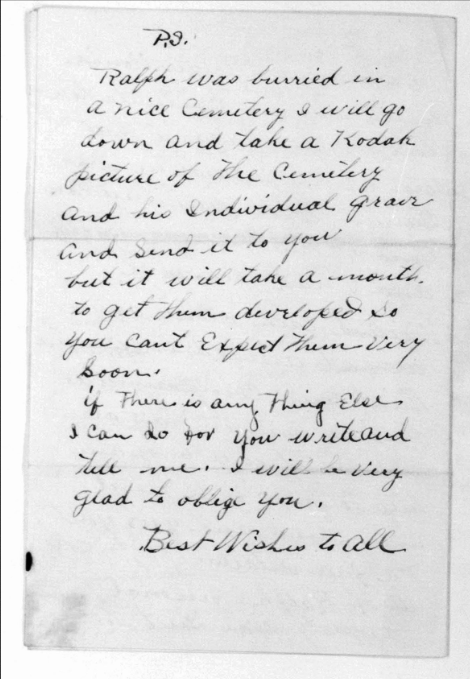 P.S.
Ralph was burried in
a nice Cemetery I will go
down and take a Kodak
picture of the Cemetery
and his Individual grave
and Send it to you
but it will take a month.
to get them developed so
you cant Expect them Very
soon.
if There is any Thing Else
I can do for you write and
tell me. I will be Very
glad to oblige you.
Best Wishes to all